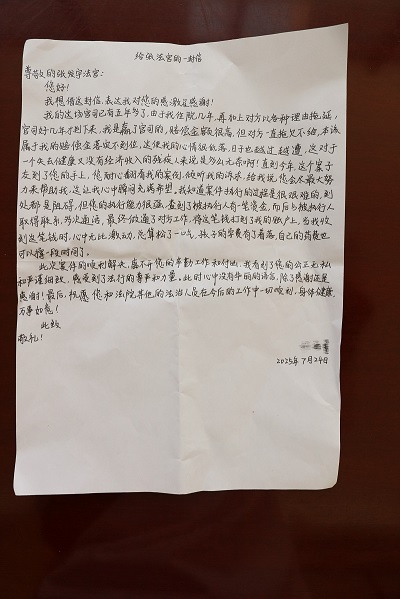 给张法官的一封信
尊敬的张发宇法官:
您好!
我想借这封信,表达我对您的感激及感谢!
我的这场官司已有五年多了,由于我住院几年,再加上对方以各种理由拖延,
官司好几年才判下来,我是赢了官司的,赔偿金额很高,但对方一直拖欠不给,本该
属于我的赔偿金落实不到位,使我的心情很低落,日子也越过越遭,这对于
一个失去健康又没有经济收入的残疾人来说是多么无奈啊!直到今年,这个案子
左到了您的手上,您耐心翻看我的案例,倾听我的诉求,给我说您会尽最大努
力来帮助我,这让我心中瞬间充满希望,我知道案件执行的过程是很艰难的,到
处都是阻碍,但您的执行能力很强,查到了被执行人有一笔资金,而后与被执行人
取得联系,多次通话,最终做通了对方工作,将这笔钱打到了我的账户上,当我收
到这笔钱时,心中无比激动,总算松了一口气,孩子的学费有了着落,自己的药费也
可以撑一段时间了。
此次案件的顺利解决,离不开您的辛勤工作和付出,我看到了您的公正无私
和严谨细致,感受到了法行的尊严和力量。此时心中没有华丽的语言,除了感谢还是
感谢!最后,祝愿您和法院其他的法治人员在今后的工作中一切顺利,身体健康,
万事如意!
此致
敬礼!
2025年7月24日